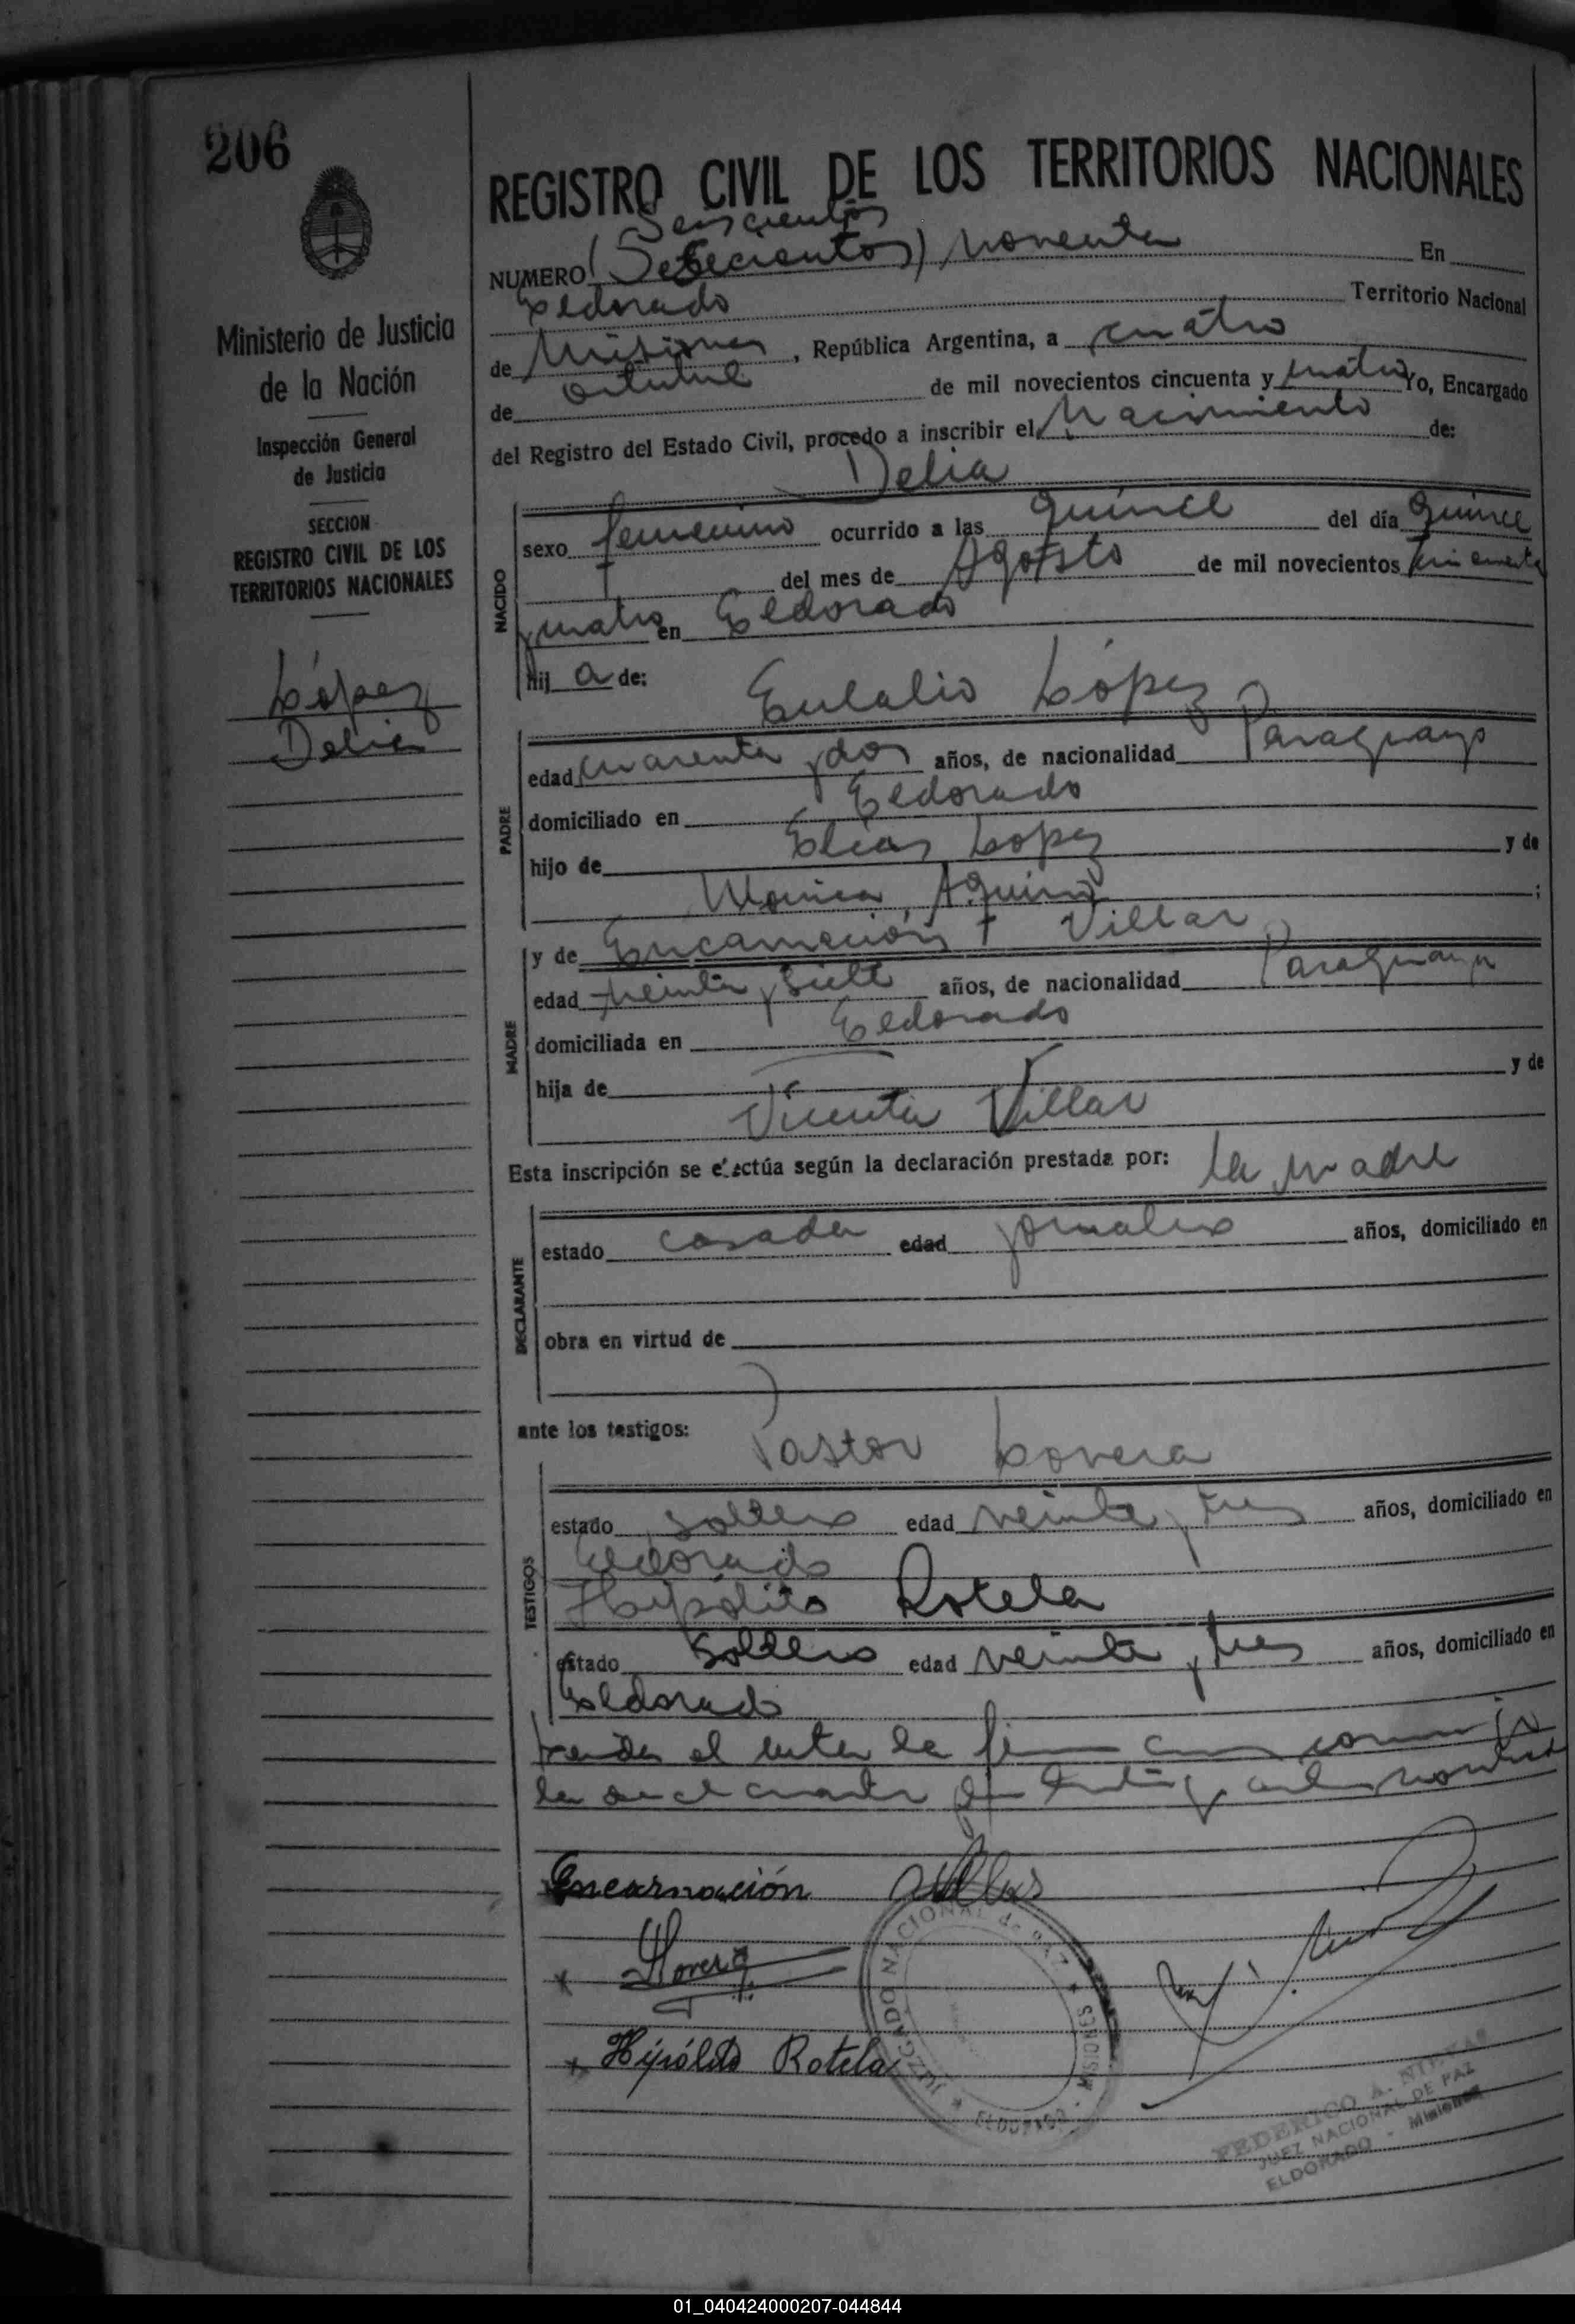 206
Ministerio de Justicia
de la Nación
Inspección General
de Justicia
SECCION
REGISTRO CIVIL DE LOS
TERRITORIOS NACIONALES
López
Delia
REGISTRO CIVIL DE LOS TERRITORIOS NACIONALES
Seiscientos
NUMERO (Setecientos) noventa En
Eldorado Territorio Nacional
de Misiones, República Argentina, a cuatro
de octubre de mil novecientos cincuenta y cuatro Yo, Encargado
del Registro del Estado Civil, procedo a inscribir el Nacimiento de:
Delia
NACIDO
sexo femenino ocurrido a las quince del día quince
del mes de Agosto de mil novecientos cincuenta
y cuatro en Eldorado
hij a de:
Eulalio López
PADRE
edad cuarenta y dos años, de nacionalidad Paraguayo
domiciliado en Eldorado
hijo de Elias Lopez y de
Monica Aquino ;
MADRE
y de Encarnación Villar
edad treinta y siete años, de nacionalidad Paraguaya
domiciliada en Eldorado
hija de y de
Vicenta Villar
Esta inscripción se efectúa según la declaración prestada por: la madre
DECLARANTE
estado casada edad jornalero años, domiciliado en
obra en virtud de
ante los testigos:
Pastor Lovera
TESTIGOS
estado soltero edad veinte y tres años, domiciliado en
Eldorado
Hipólito Rotela
estado soltero edad veinte y tres años, domiciliado en
Eldorado
el acta la
la
Encarnación Villar
x Llovera
x Hipólito Rotela
JUZGADO NACIONAL de PAZ ★ MISIONES - ELDORADO ★
FEDERICO A.
JUEZ NACIONAL DE PAZ
ELDORADO - Misiones
01_040424000207-044844